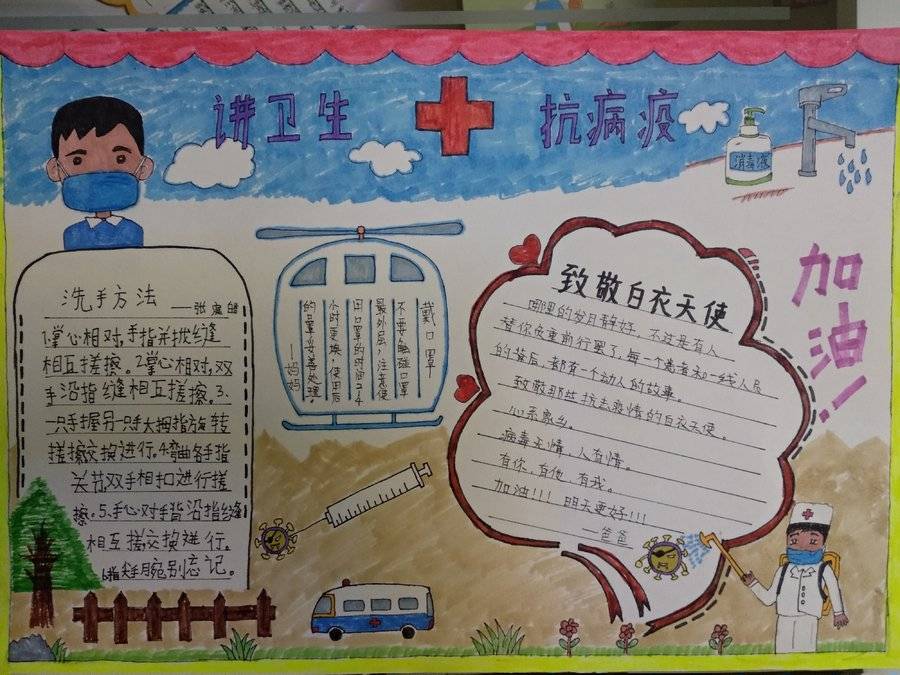 讲卫生
抗病疫
消毒液
加油!
洗手方法
1.掌心相对,手指并拢缝
相互搓擦。2.掌心相对,双
手沿指缝相互搓擦。3.
一只手握另一只手大拇指旋转
搓擦交换进行。4.弯曲各手指
关节双手相扣进行搓
擦。5.手心对手指沿指缝
相互搓擦交换进行。
别忘记。
戴口罩
不要触碰口罩
最外层,注意使
用口罩的时间2-4
小时更换,使用后
的口罩要妥善处理。
——妈妈
致敬白衣天使
哪里的岁月静好,不过是有人
替你负重前行罢了,每一个患者和一线人员
的背后,都有一个动人的故事。
致敬那些抗击疫情的白衣天使。
心系家乡。
病毒无情,人有情。
有你,有他,有我。
加油!!!明天更好!!!
——爸爸